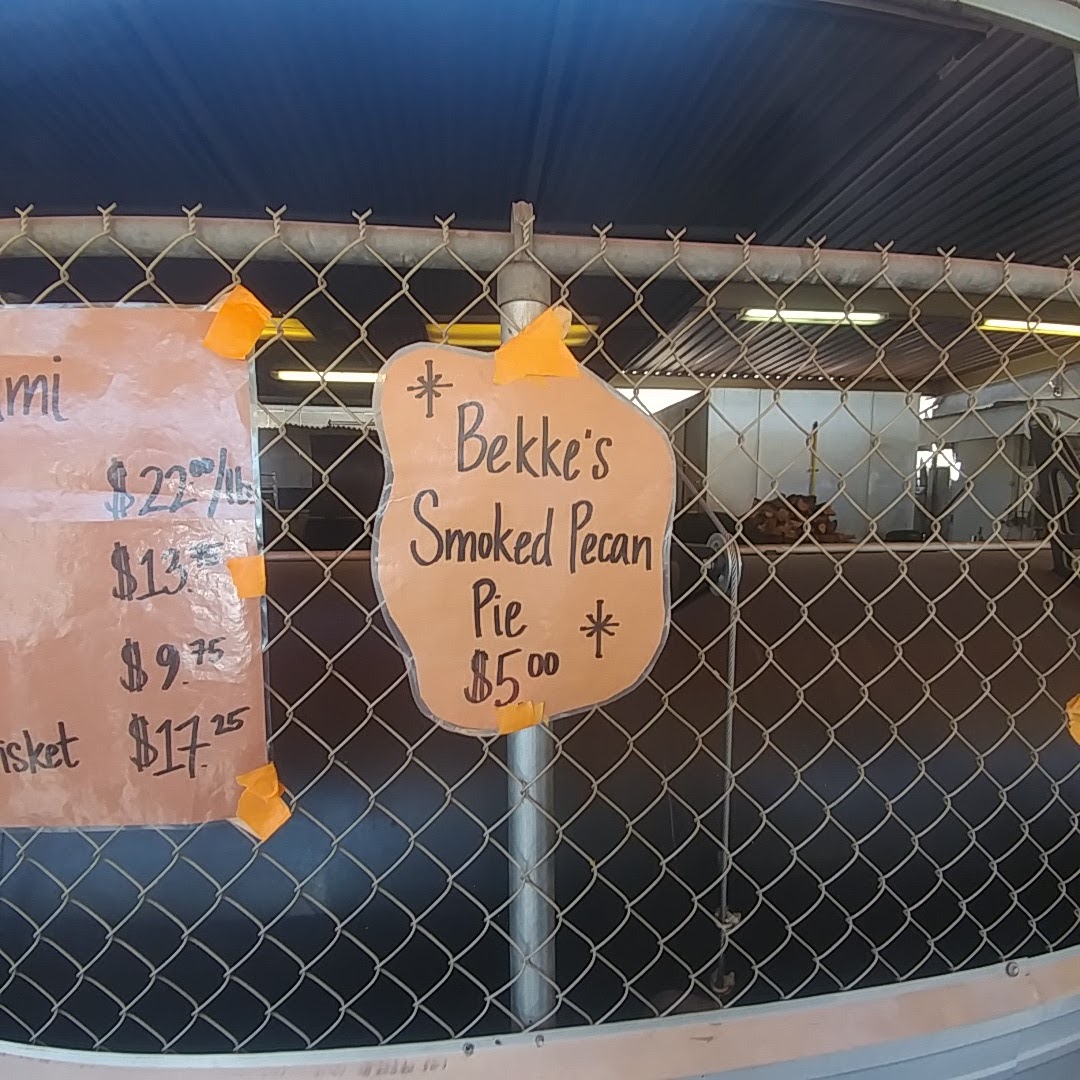 mi
$22.00/lb
$13.
$9.75
isket $17.25
* Bekke's
Smoked Pecan
Pie *
$5.00